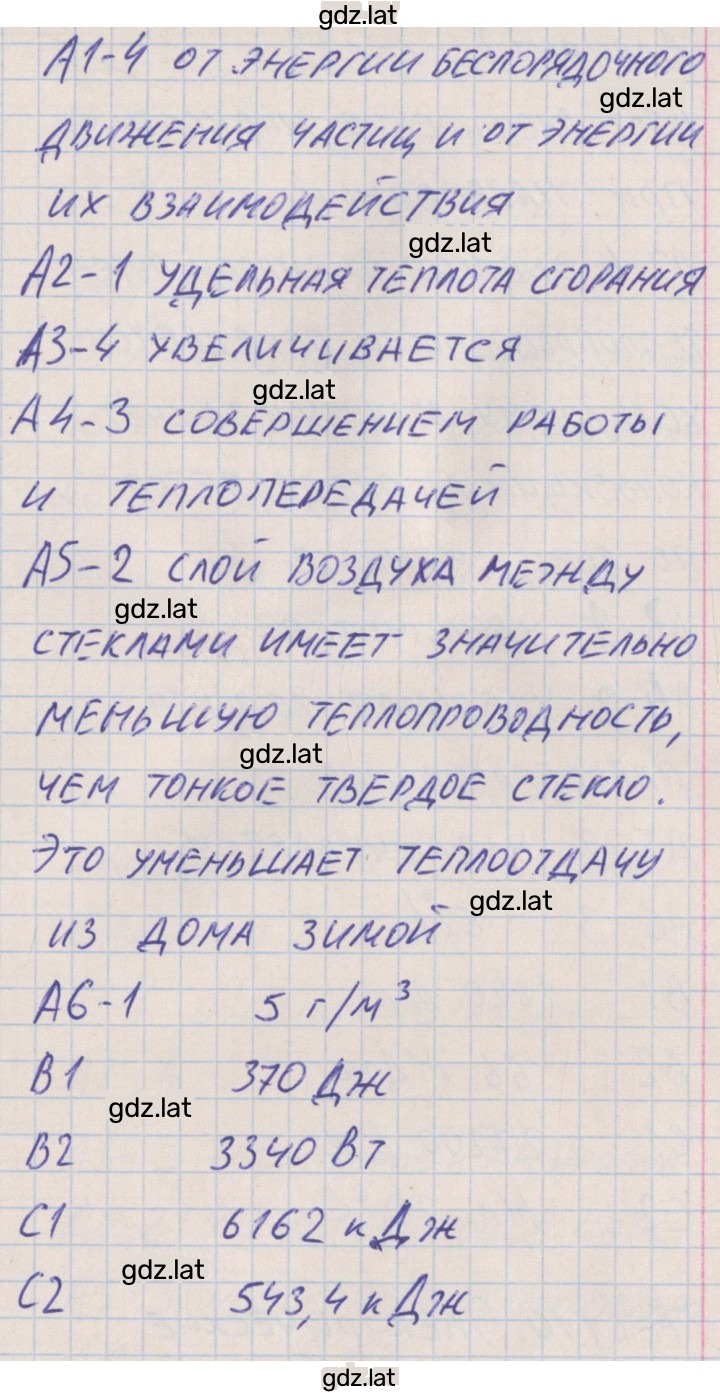 gdz.lat
А1-4 ОТ ЭНЕРГИИ БЕСПОРЯДОЧНОГО
gdz.lat
ДВИЖЕНИЯ ЧАСТИЦ И ОТ ЭНЕРГИИ
ИХ ВЗАИМОДЕЙСТВИЯ
gdz.lat
А2-1 УДЕЛЬНАЯ ТЕПЛОТА СГОРАНИЯ
А3-4 УВЕЛИЧИВАЕТСЯ
gdz.lat
А4-3 СОВЕРШЕНИЕМ РАБОТЫ
И ТЕПЛОПЕРЕДАЧЕЙ
А5-2 СЛОЙ ВОЗДУХА МЕЖДУ
gdz.lat
СТЕКЛАМИ ИМЕЕТ ЗНАЧИТЕЛЬНО
МЕНЬШУЮ ТЕПЛОПРОВОДНОСТЬ,
gdz.lat
ЧЕМ ТОНКОЕ ТВЕРДОЕ СТЕКЛО.
ЭТО УМЕНЬШАЕТ ТЕПЛООТДАЧУ
gdz.lat
ИЗ ДОМА ЗИМОЙ
А6-1 5 г/м³
В1 370 Дж
gdz.lat
В2 3340 Вт
С1 6162 кДж
gdz.lat
С2 543,4 кДж
gdz.lat